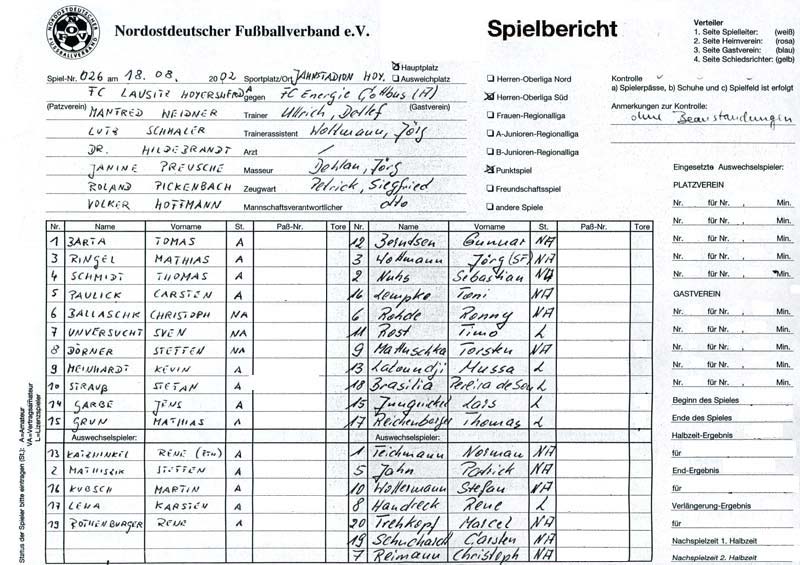 NORDOSTDEUTSCHER
NOFV
FUSSBALLVERBAND
Nordostdeutscher Fußballverband e.V.
Spielbericht
Verteiler
1. Seite Spielleiter: (weiß)
2. Seite Heimverein: (rosa)
3. Seite Gastverein: (blau)
4. Seite Schiedsrichter: (gelb)
Hauptplatz
Spiel-Nr. 026 am 18.08. 2002 Sportplatz/Ort JAHNSTADION HOY. Ausweichplatz
FC LAUSITZ HOYERSWERDA gegen FC Energie Cottbus (A)
(Platzverein) (Gastverein)
MANFRED WEIDNER Trainer Ullrich, Detlef
LUTZ SCHMALER Trainerassistent Woltmann, Jörg
DR. HILDEBRANDT Arzt /
JANINE PREUSCHE Masseur Dehlan, Jörg
ROLAND PICKENBACH Zeugwart Petrick, Siegfried
VOLKER HOFFMANN Mannschaftsverantwortlicher dto
Herren-Oberliga Nord
Herren-Oberliga Süd
Frauen-Regionalliga
A-Junioren-Regionalliga
B-Junioren-Regionalliga
Punktspiel
Freundschaftsspiel
andere Spiele
Kontrolle
a) Spielerpässe, b) Schuhe und c) Spielfeld ist erfolgt
Anmerkungen zur Kontrolle:
ohne Beanstandungen
Nr. Name Vorname St. Paß-Nr. Tore Nr. Name Vorname St. Paß-Nr. Tore
1 BARTA TOMAS A 12 Berndsen Gunnar NA
3 RINGEL MATHIAS A 3 Woltmann Jörg (SF) NA
4 SCHMIDT THOMAS A 2 Nuhs Sebastian NA
5 PAULICK CARSTEN A 16 Lempke Toni NA
6 BALLASCHK CHRISTOPH NA 6 Rohde Ronny NA
7 UNVERSUCHT SVEN NA 11 Rost Timo L
8 DÖRNER STEFFEN NA 9 Mattuschka Torsten NA
9 MEINHARDT KEVIN A 13 Latoundji Mussa L
10 STRAUß STEFAN A 18 Brasilia Pereira de Sou L
14 GARBE JENS A 15 Jungnickel Lars L
15 GRUN MATHIAS A 17 Reichenberger Thomas L
Auswechselspieler: Auswechselspieler:
13 KAISHINKEL RENE A 1 Teichmann Norman NA
2 MATHISZIK STEFFEN A 5 Jahn Patrick NA
16 KUBSCH MARTIN A 10 Woltermann Stefan NA
17 LEHA KARSTEN A 8 Handreck Rene L
19 ROTHENBURGER RENE A 20 Trehkopf Marcel NA
19 Schuchardt Carsten NA
7 Reimann Christoph NA
Status der Spieler bitte eintragen (St.): A=Amateur
VA=Vertragsamateur
L=Lizenzspieler
Eingesetzte Auswechselspieler:
PLATZVEREIN
Nr. für Nr. , Min.
Nr. für Nr. , Min.
Nr. für Nr. , Min.
Nr. für Nr. , Min.
GASTVEREIN
Nr. für Nr. , Min.
Nr. für Nr. , Min.
Nr. für Nr. , Min.
Nr. für Nr. , Min.
Nr. für Nr. , Min.
Beginn des Spieles
Ende des Spieles
Halbzeit-Ergebnis
für
End-Ergebnis
für
Verlängerung-Ergebnis
für
Nachspielzeit 1. Halbzeit
Nachspielzeit 2. Halbzeit